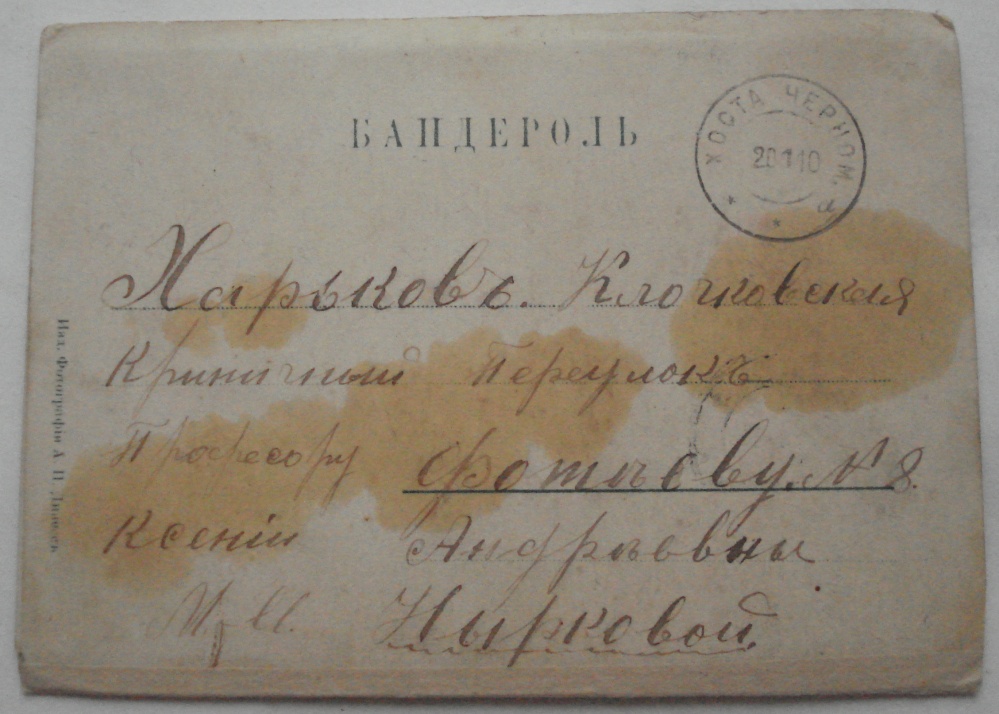 БАНДЕРОЛЬ
ХОСТА ЧЕРНОМ. а
20 1 10
Харьковъ. Клочковская
Криничный Переулокъ
Професору Фотѣеву. № 8.
Ксеніи Андрѣевны
Нырковой
Изд. Фотографія